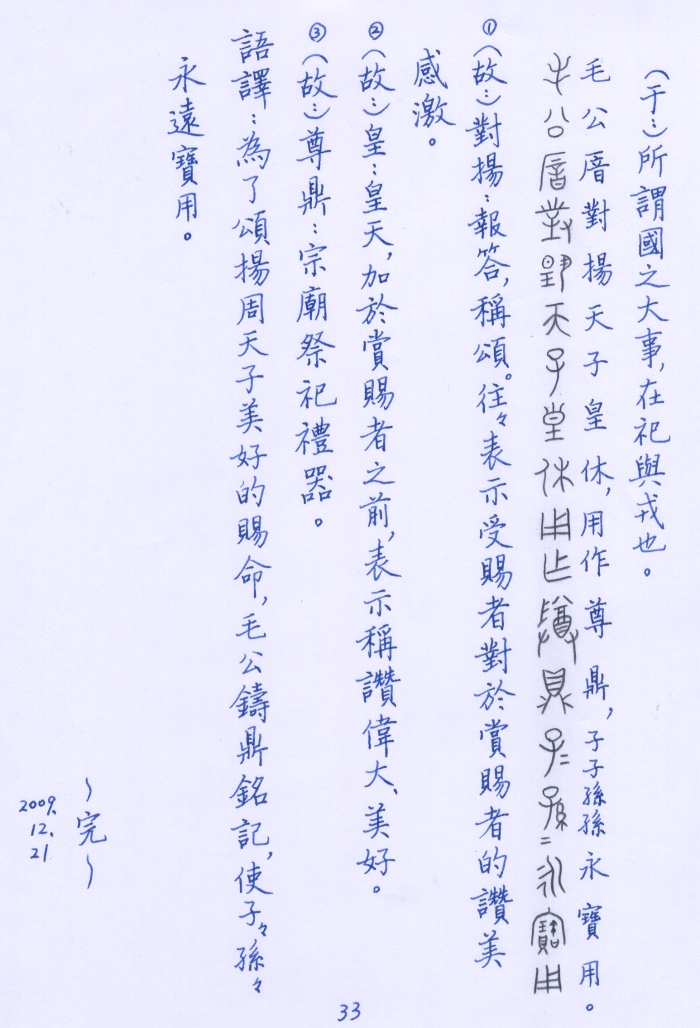 （于…）所謂國之大事，在祀與戎也。
毛公厝對揚天子皇休，用作尊鼎，子子孫孫永寶用。
毛公厝對揚天子皇休用乍尊鼎子=孫=永寶用
①（故…）對揚：報答，稱頌。往々表示受賜者對於賞賜者的讚美
感激。
②（故…）皇：皇天，加於賞賜者之前，表示稱讚偉大、美好。
③（故…）尊鼎：宗廟祭祀禮器。
語譯：為了頌揚周天子美好的賜命，毛公鑄鼎銘記，使子々孫々
永遠寶用。
～完～
2009.
12.
21
33